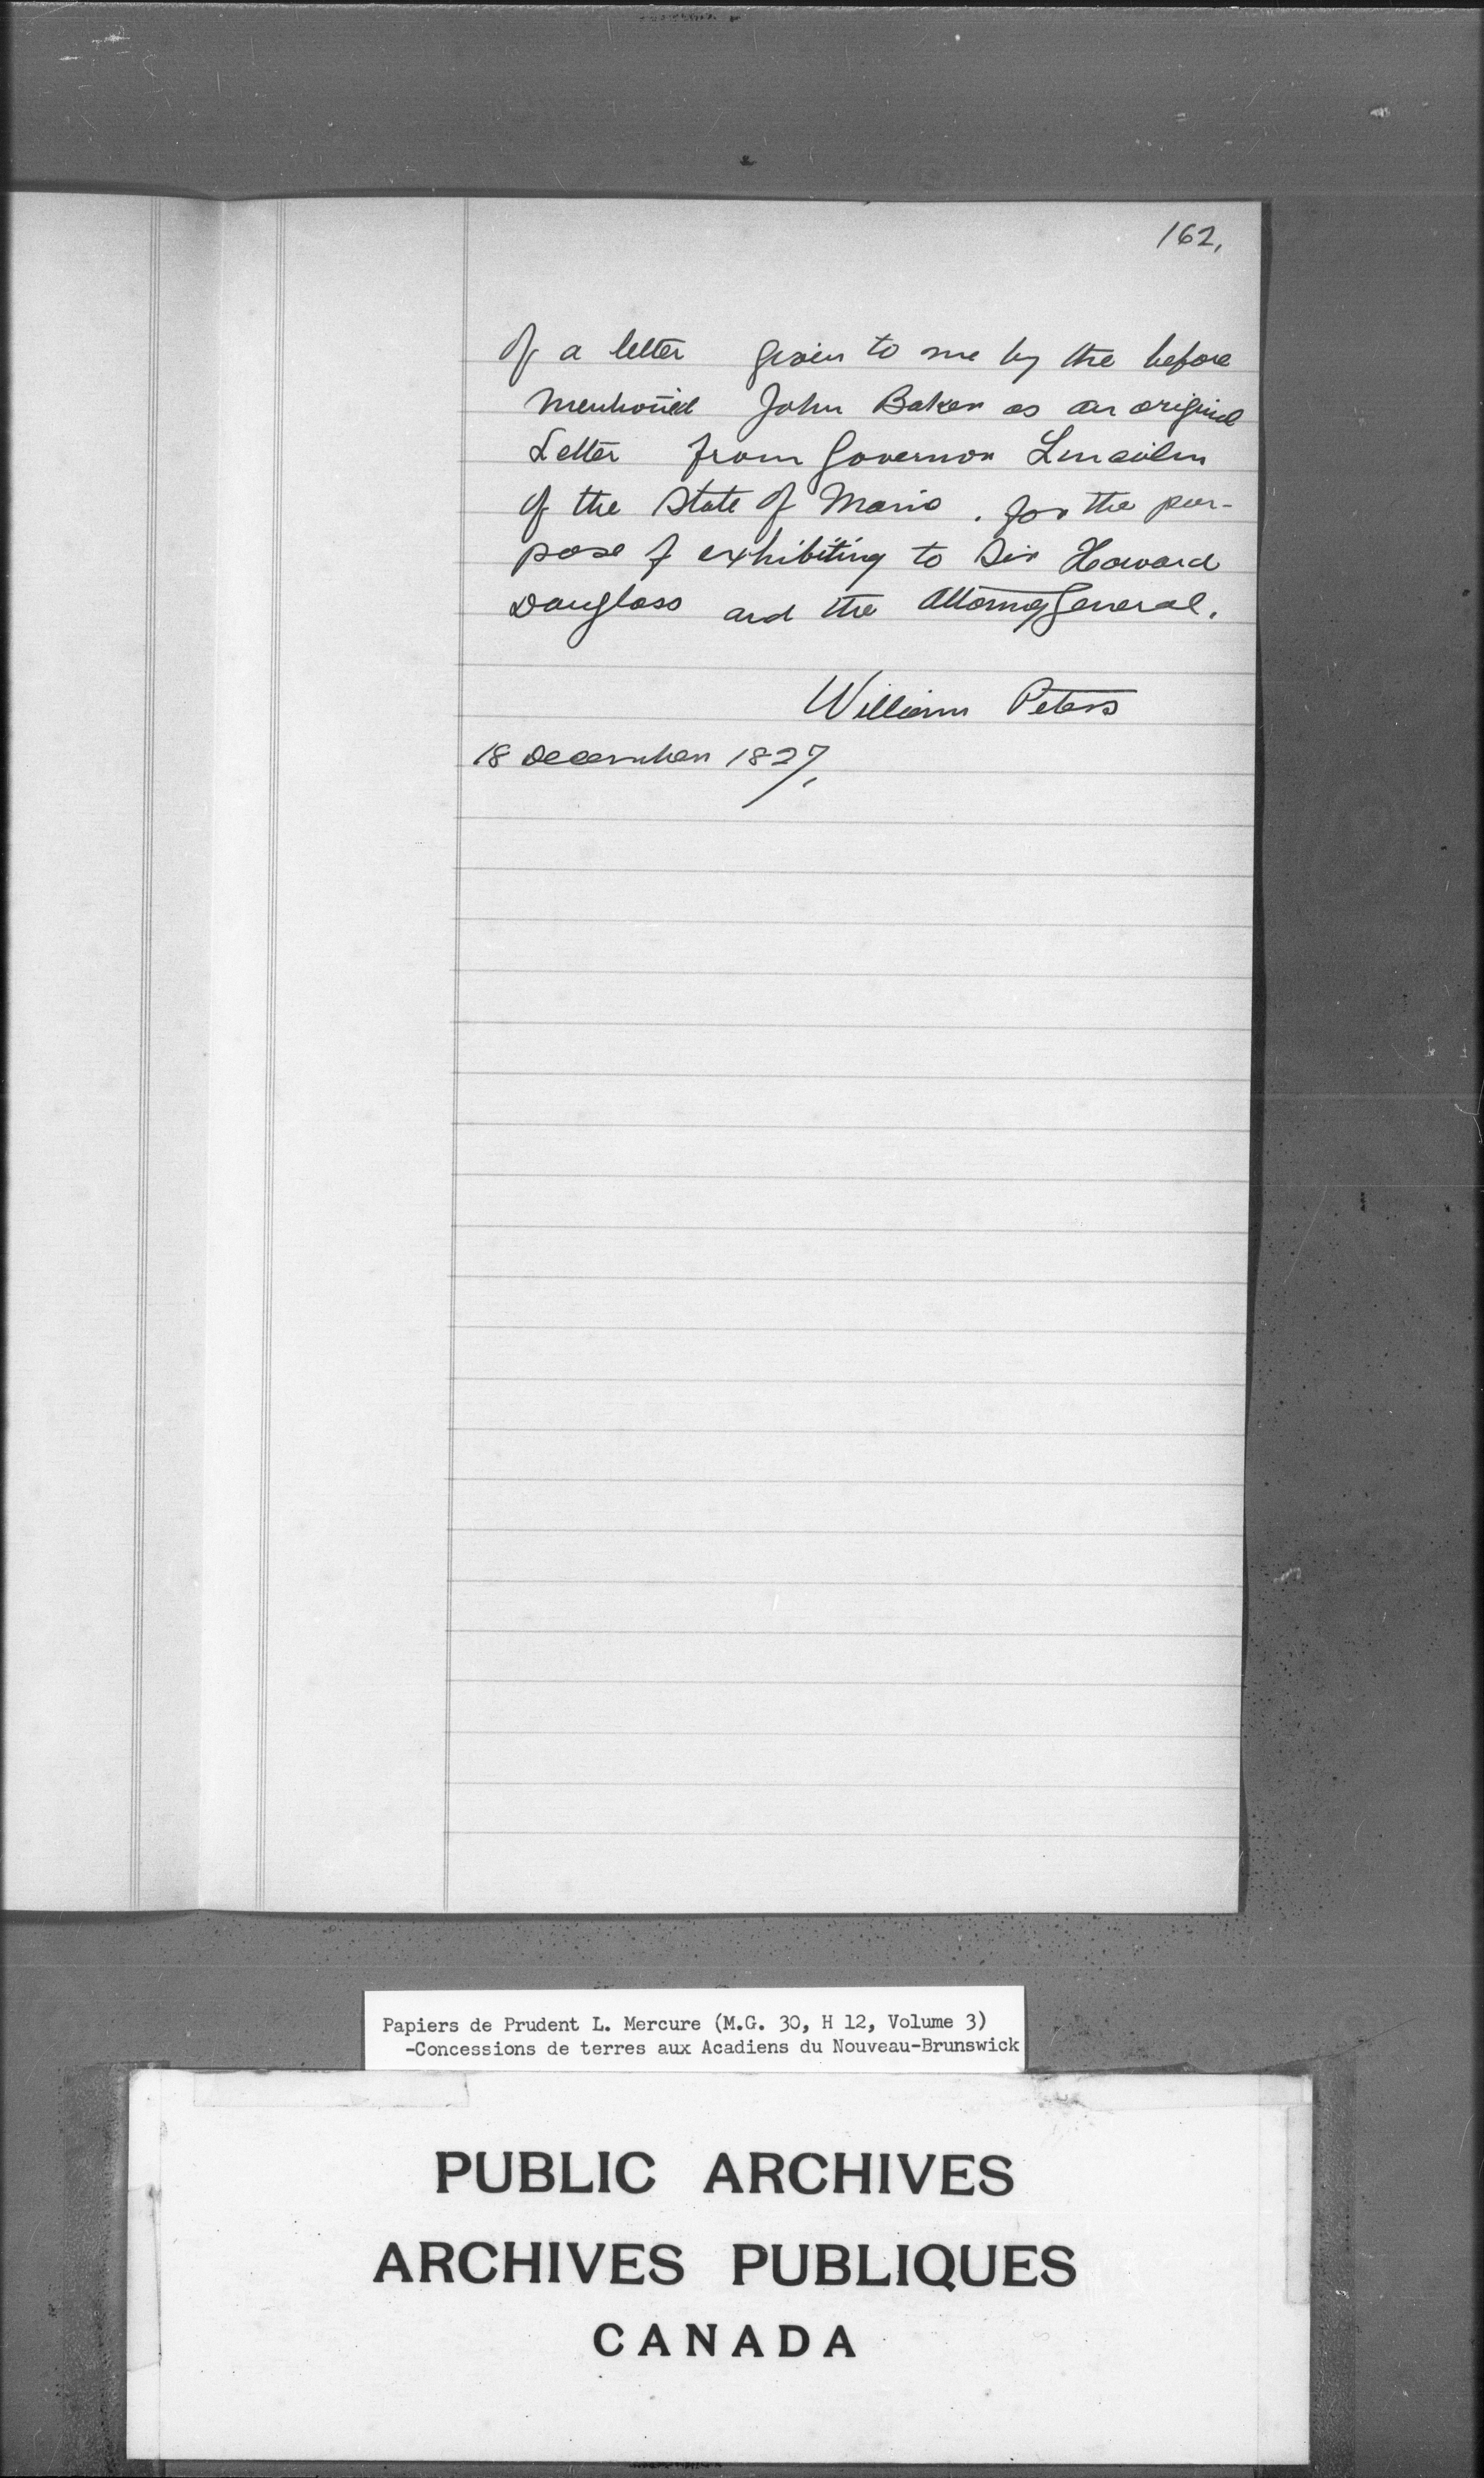 162.
of a letter given to me by the before
mentioned John Baker as an original
Letter from Governor Lincoln
of the State of Maine. for the pur-
pose of exhibiting to Sir Howard
Douglass and the Attorney General.
William Peters
18 December 1827.
Papiers de Prudent L. Mercure (M.G. 30, H 12, Volume 3)
-Concessions de terres aux Acadiens du Nouveau-Brunswick
PUBLIC ARCHIVES
ARCHIVES PUBLIQUES
CANADA